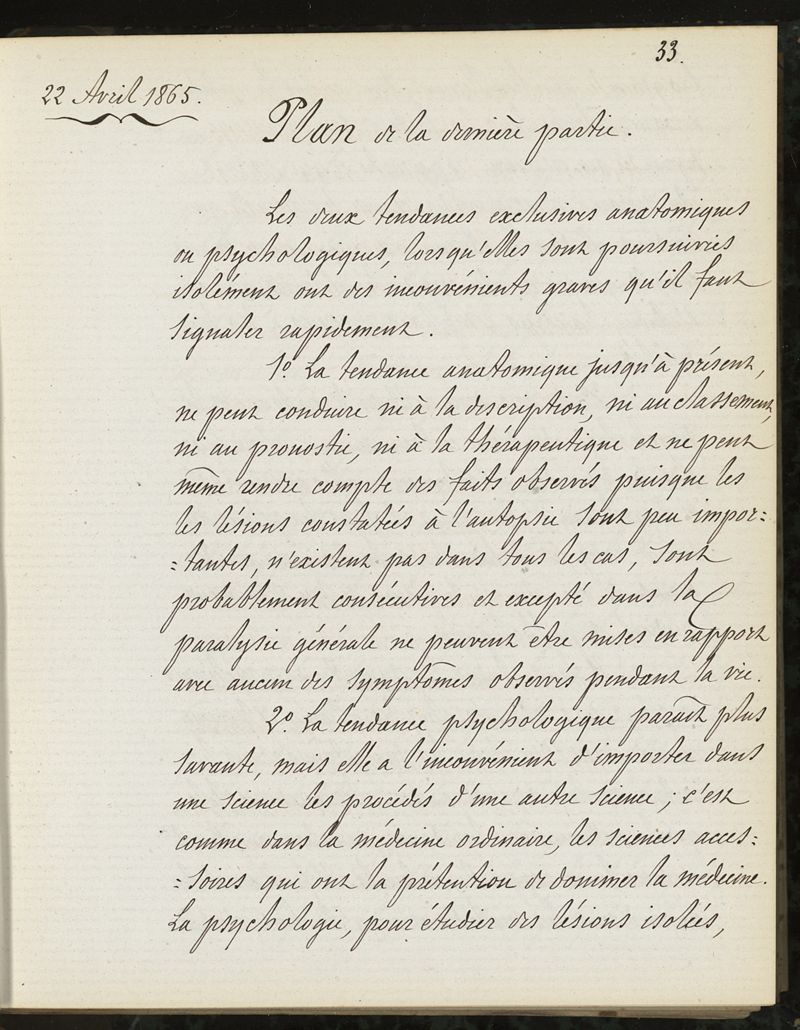 33.
22 Avril 1865.
Plan de la dernière partie.
Les deux tendances exclusives anatomiques
ou psychologiques, lorsqu'elles sont poursuivies
isolément ont des inconvénients graves qu'il faut
signaler rapidement.
1º. La tendance anatomique jusqu'à présent,
ne peut conduire ni à la description, ni au classement,
ni au pronostic, ni à la thérapeutique et ne peut
même rendre compte des faits observés puisque les
les lésions constatées à l'autopsie sont peu impor=
=tantes, n'existent pas dans tous les cas, sont
probablement consécutives et excepté dans la
paralysie générale ne peuvent être mises en rapport
avec aucun des symptômes observés pendant la vie.
2º. La tendance psychologique paraît plus
savante, mais elle a l'inconvénient d'importer dans
une science les procédés d'une autre science ; c'est
comme dans la médecine ordinaire, les sciences acces=
=soires qui ont la prétention de dominer la médecine.
La psychologie, pour étudier des lésions isolées,